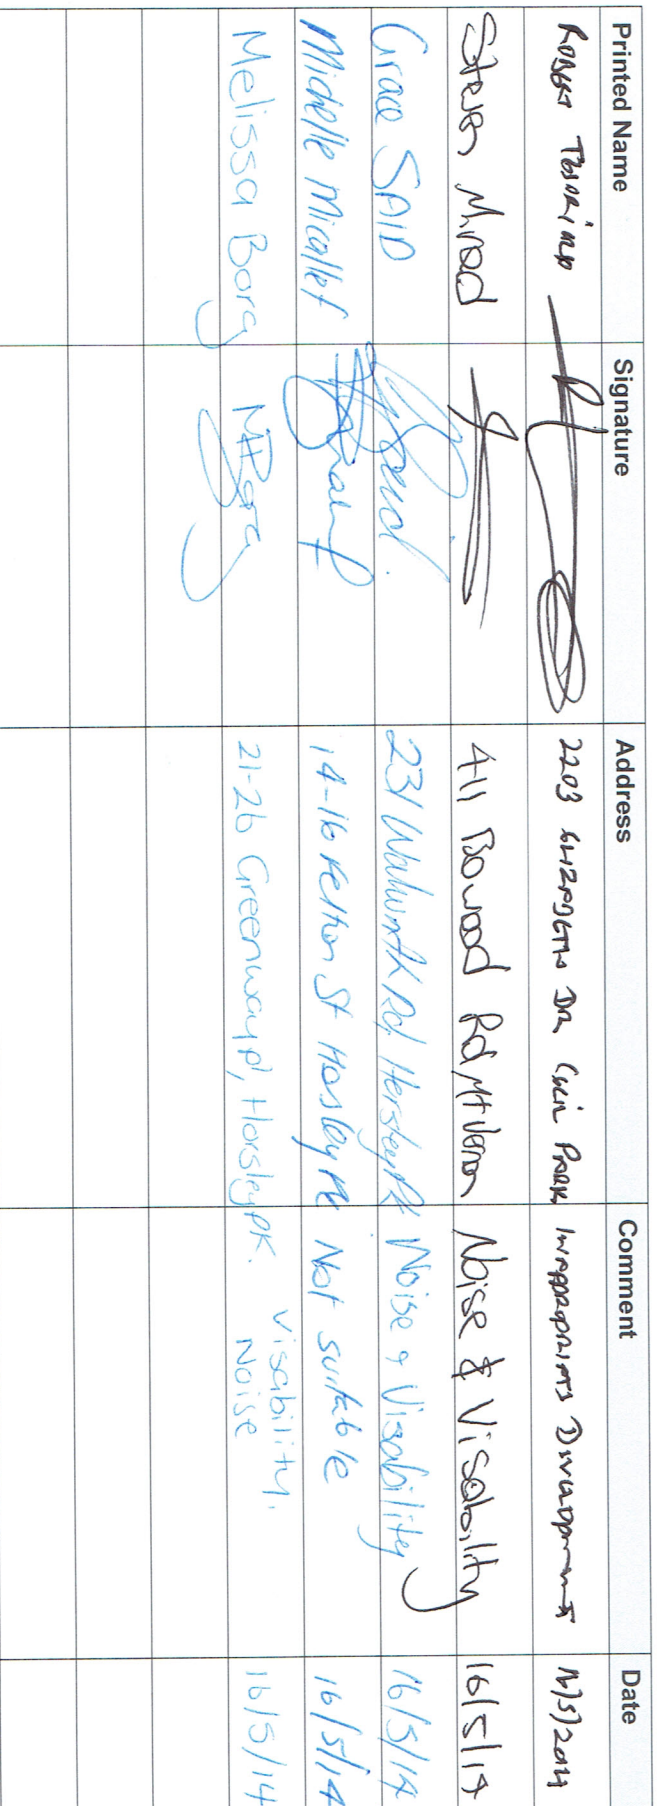 Printed Name Signature Address Comment Date
Robert 2203 Elizabeth Dr Cecil Park Inappropriate Development 16/5/2014
Steven Mrad 411 Bowood Rd, Mt Vernon Noise & Visability 16/5/14
Grace SAID 231 Walworth Rd Horsley Pk Noise & Visability 16/5/14
Michelle Micallef 14-16 Felton St Hosley Pk Not suitable 16/5/14
Melissa Borg MBorg 21-26 Greenway pl, Horsley PK. Visability, 16/5/14
Noise